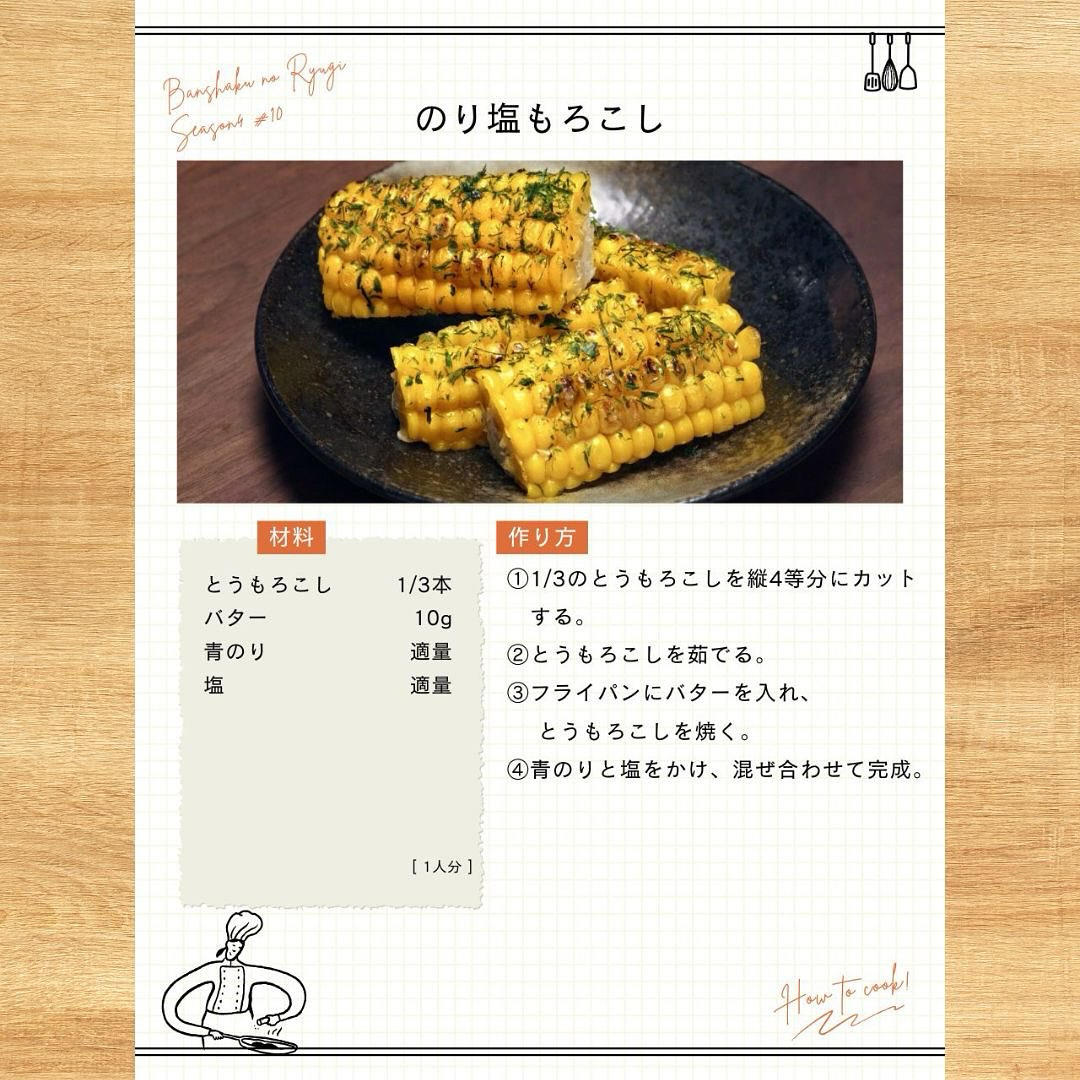 Banshaku no Ryugi
Season4 #10
のり塩もろこし
材料
とうもろこし 1/3本
バター 10g
青のり 適量
塩 適量
[ 1人分 ]
作り方
①1/3のとうもろこしを縦4等分にカット
する。
②とうもろこしを茹でる。
③フライパンにバターを入れ、
とうもろこしを焼く。
④青のりと塩をかけ、混ぜ合わせて完成。
How to cook!